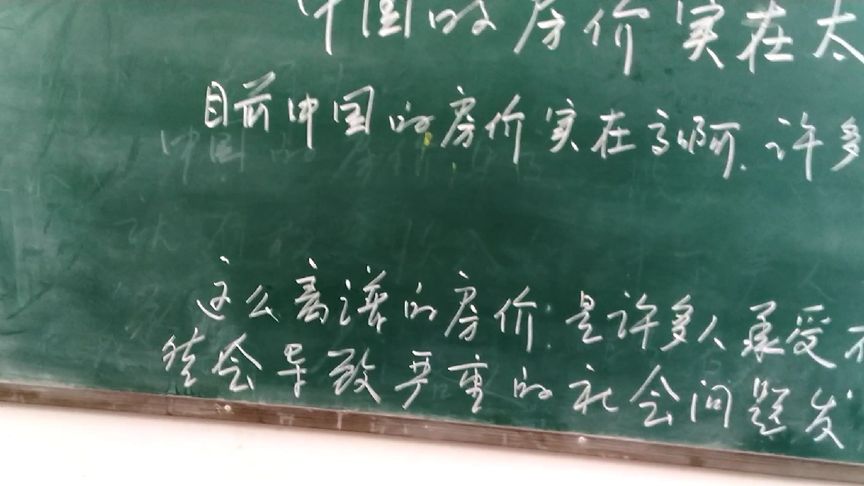 中国的房价实在太
目前中国的房价实在高啊.许多
这么离谱的房价:是许多人承受不
终会导致严重的社会问题发